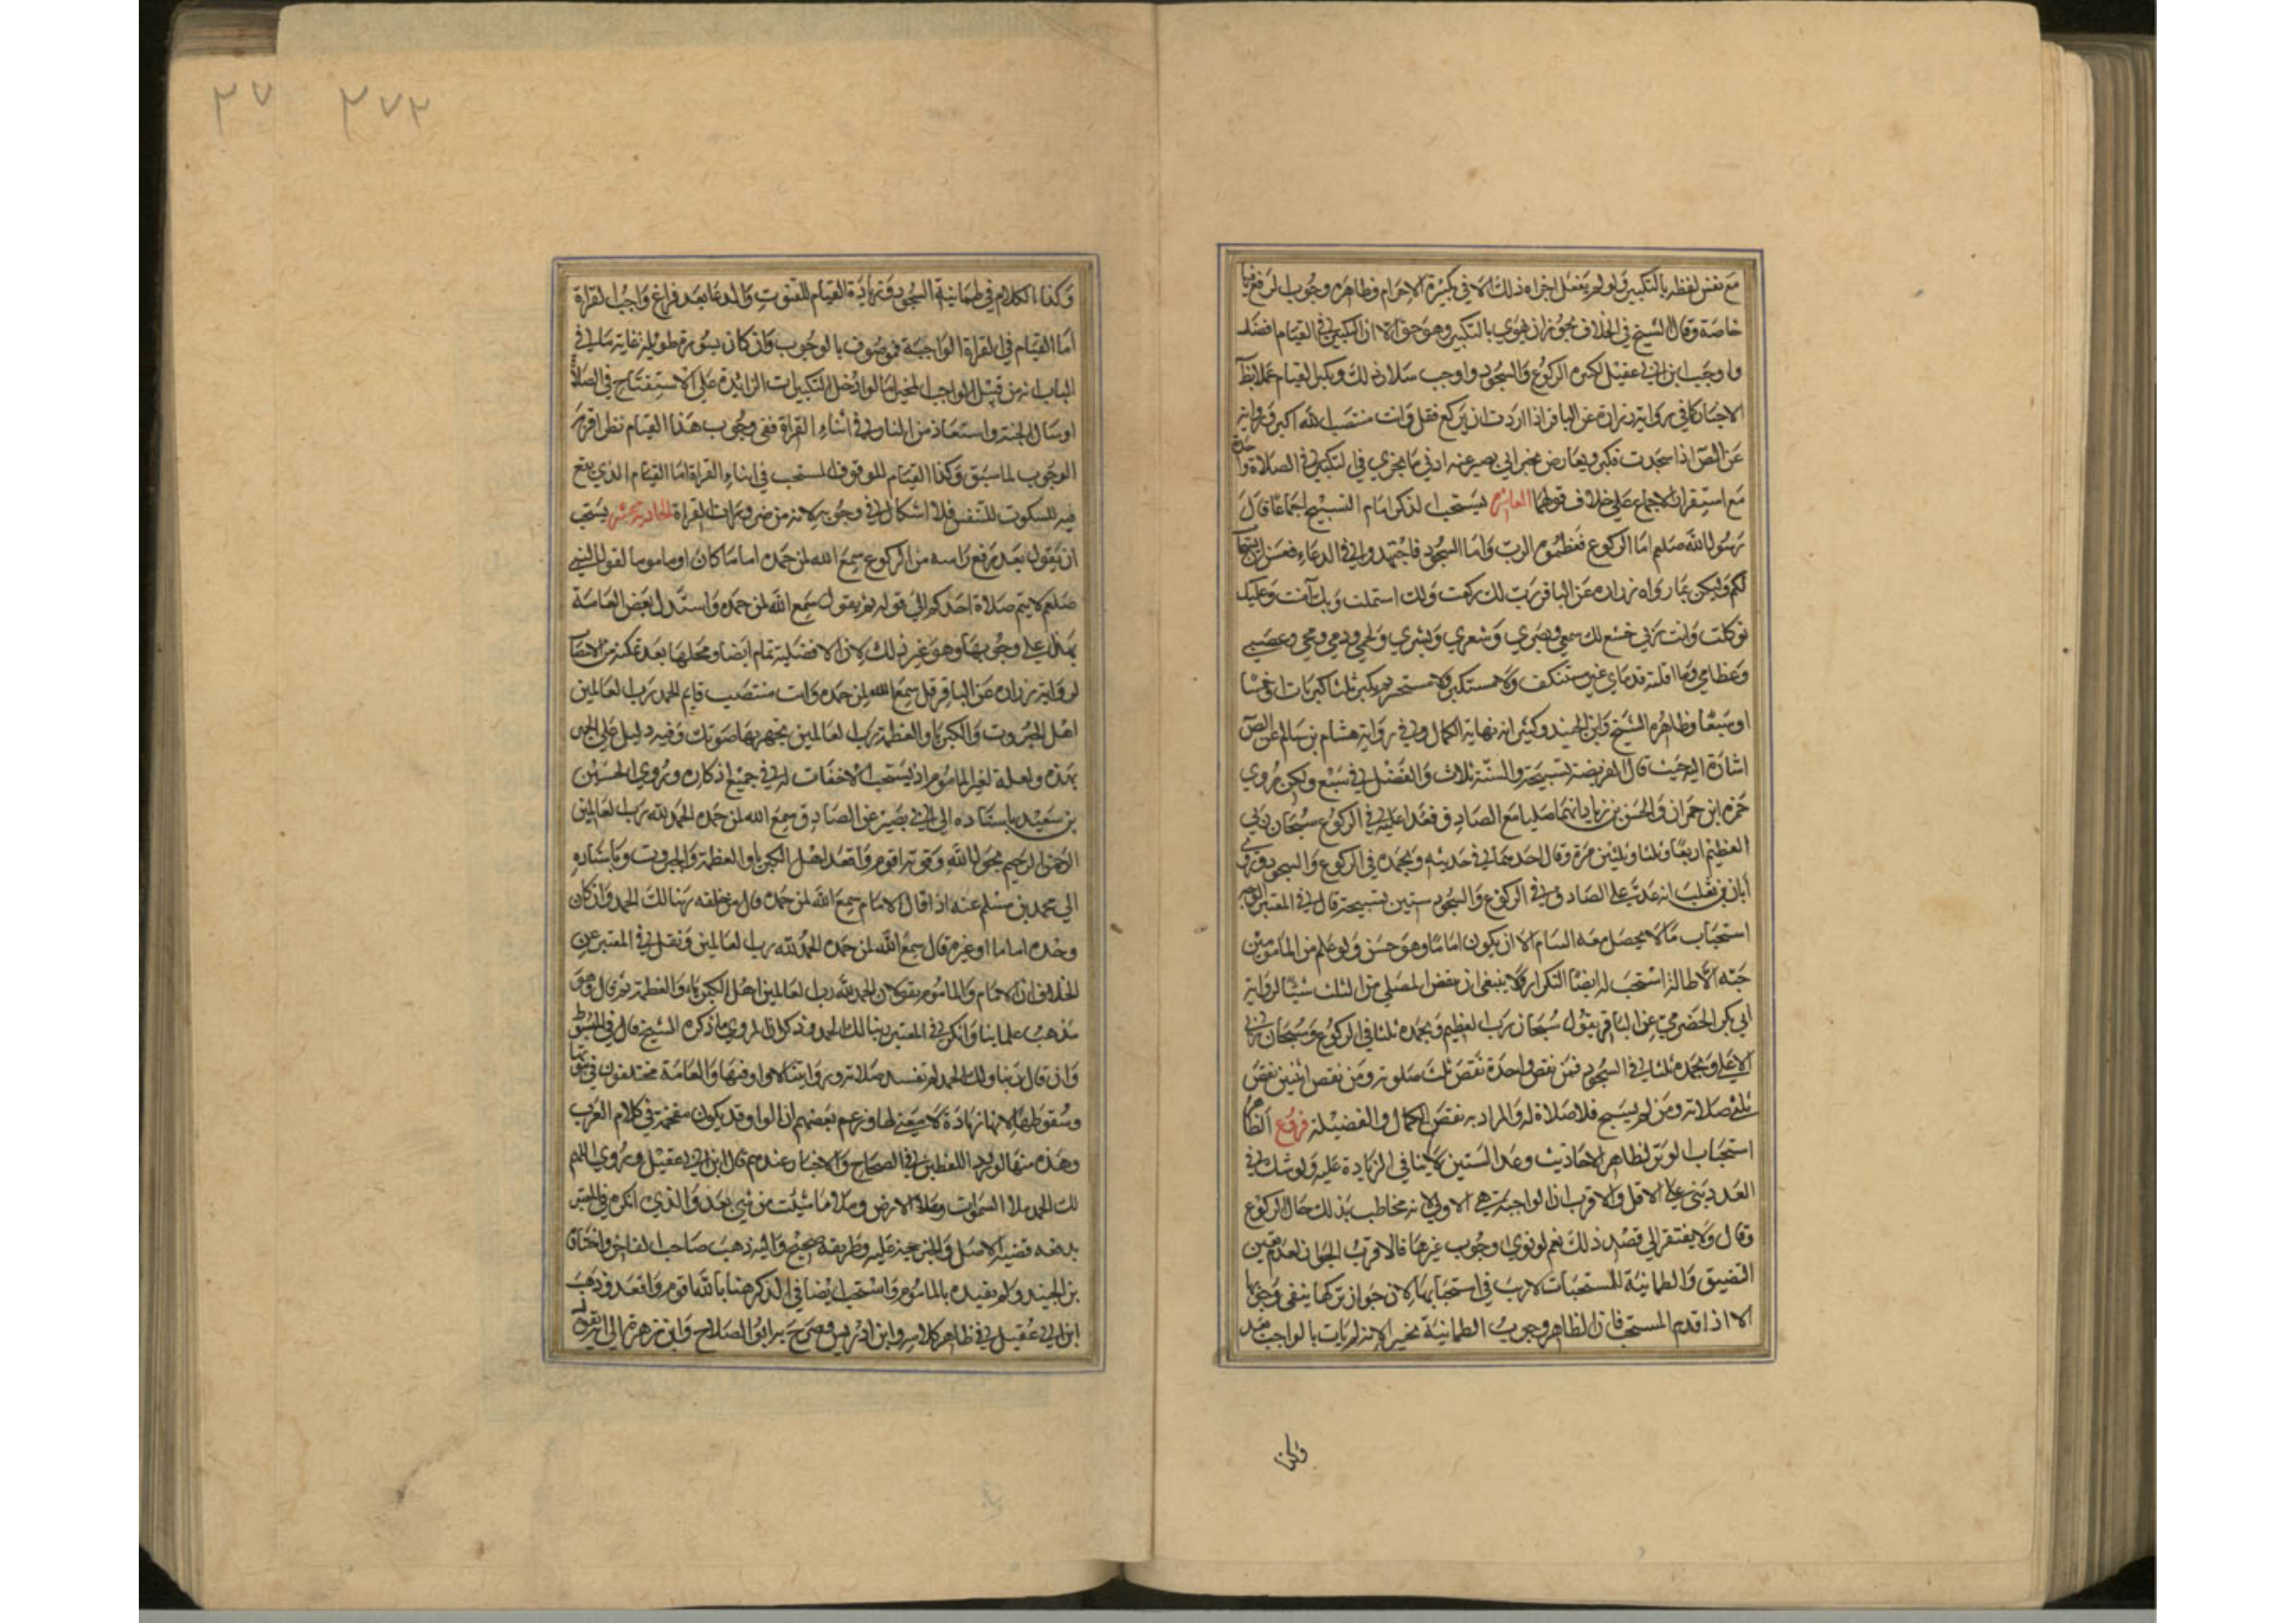 مع نفس لفظه بالتكبير ولو لم يفعل اجزاه ذلك الا في تكبيرة الاحرام وظاهره وجوب الرفع فيها
خاصة وقال الشيخ في الخلاف يجوز ان يهوي بالتكبير وهو حق الا ان التكبير في القيام افضل
واوجب ابن ابي عقيل تكبيرة الركوع والسجود واوجب سلار ذلك وتكبير القيام عملا بظاهر
الاخبار كما في رواية زرارة عن الباقر اذا اردت ان تركع فقل وانت منتصب الله اكبر
عن الص اذا سجدت فكبر ويعارض بخبر ابي بصير عنه ادنى ما يجزي في التكبير في الصلاة واحدة
مع استقرار الاجماع على خلاف قولهما العاشرة يستحب الذكر امام التسبيح اجماعا قال
رسول الله صلعم اما الركوع فعظموا الرب واما السجود فاجتهدوا في الدعاء فقمن ان يستجاب
لكم وليكن بما رواه زرارة عن الباقر رب لك ركعت ولك اسلمت وبك آمنت وعليك
توكلت وانت ربي خشع لك سمعي وبصري وشعري وبشري ولحمي ودمي ومخي وعصبي
وعظامي وما اقلته قدماي غير مستنكف ولا مستكبر ولا مستحسر ثم يكبر ثلثا
او سبعا وظاهر الشيخ وابن الجنيد وكثير انه نهاية الكمال وفي رواية هشام بن سالم عن الص
اشارة اليه حيث قال الفريضة تسبيحة والسنة ثلاث والفضل في سبع ولكن روي
حمزة ابن حمران والحسن بن زياد انهما صليا مع الصادق فعدا عليه في الركوع سبحان ربي
العظيم اربعا وثلثا وثلثين مرة وقال احدهما في حديثه وبحمده في الركوع والسجود وروى
أبان بن تغلب انه عد على الصادق في الركوع والسجود ستين تسبيحة قال في المعتبر الوجه
استحباب ما لا يحصل معه السام الا ان يكون اماما وهو حسن ولو علم من المامومين
حبه الاطالة استحب له ايضا التكرار ولا ينبغي ان ينقص المصلي من الثلث شيئا لرواية
ابي بكر الحضرمي عن الباقر يقول سبحان رب العظيم وبحمده ثلثا في الركوع وسبحان ربي
الاعلى وبحمده ثلثا في السجود فمن نقص واحدة نقص ثلث صلوته ومن نقص اثنين نقص
ثلثي صلاته ومن لم يسبح فلا صلاة له والمراد به نقص الكمال والفضيلة فروع الظاهر
استحباب الوتر لظاهر الاحاديث وعد الستين لا ينافي الزيادة عليه ولو شك في
العدد بنى على الاقل والاقرب ان الواجبة هي الاولى لانه مخاطب بذلك حال الركوع
وقال ولا يفتقر الى قصد ذلك نعم لو نوى وجوب غيرها فالاقرب الجواز لعدم تعين
التضيق والطمانية للمستحبات لا ريب في استحبابها لان جواز تركها ينفي وجوبها
الا اذا قدم المستحب فان الظاهر وجوب الطمانية تخييرا لانه لم يات بالواجب بعد
وكذا
٢٧٢ ٢٧
وكذا الكلام في طمانية السجود وزيادة القيام للقنوت والدعا بعد فراغ واجب القراة
اما القيام في القراة الواجبة فموصوف بالوجوب وان كان بسورة طويلة غاية ما في
الباب انه من قبيل الواجب المخير اما لو ادخل التكبيرات الزائدة على الاستفتاح في الصلاة
او سال الجنة واستعاذ من النار في اثناء القراة ففي وجوب هذا القيام نظر اقربه
الوجوب لما سبق وكذا القيام للوقوف المستحب في اثناء القراة اما القيام الذي يقع
فيه السكوت للتنفس فلا اشكال في وجوبه لانه من ضرورات القراة الحادية عشر يستحب
ان يقول بعد رفع راسه من الركوع سمع الله لمن حمده اماما كان او ماموما لقول النبي
صلعم لا يتم صلاة احدكم الى قوله ثم يقول سمع الله لمن حمده واستدل بعض العامة
بهذا على وجوبها وهو غير ذلك لان الافضلية تمام ايضا ومحلها بعد تمكنه من الانتصاب
لرواية زرارة عن الباقر قل سمع الله لمن حمده وانت منتصب قايم الحمد رب العالمين
اهل الجبروت والكبريا والعظمة رب العالمين تجهر بها صوتك وفيه دليل على الجهر
بهذه ولعله لغير الماموم اذ يستحب الاخفات له في جميع اذكاره وروى الحسين
بن سعيد باسناده الى ابي بصير عن الصادق سمع الله لمن حمده الحمد لله رب العالمين
الرحمن الرحيم بحول الله وقوته اقوم واقعد اهل الكبريا والعظمة والجبروت وباسناده
الى محمد بن مسلم عنه اذا قال الامام سمع الله لمن حمده قال من خلفه ربنا لك الحمد وان كان
وحده اماما او غيره قال سمع الله لمن حمده الحمد لله رب العالمين ونقل في المعتبر عن
الخلاف ان الامام والماموم يقولان الحمد لله رب العالمين اهل الكبرياء والعظمة ثم قال وهو
مذهب علمائنا وانكر في المعتبر ربنا لك الحمد وذكر ان المروي ما ذكره الشيخ قال في المبسوط
وان قال ربنا ولك الحمد لم تفسد صلاته وروايتنا لا واو فيها والعامة مختلفون في ثبوتها
وسقوطها لانها زيادة لا معنى لها وزعم بعضهم ان الواو قد يكون مقحمة في كلام العرب
وهذه منها لورود اللفظين في الصحاح والاخبار عندهم قال ابن ابي عقيل وروي اللهم
لك الحمد ملا السموات وملا الارض وملا ما شئت من شيء بعد والذي انكره في المعتبر
يدفعه قضية الاصل والخبر حجة عليه وطريقه صحيح واليه ذهب صاحب الفاخر واختاره
بن الجنيد ولم يقيده بالماموم واستحب ايضا في الذكر هنا بالله اقوم واقعد وذهب
ابن ابي عقيل في ظاهر كلامه وابن ادريس وصرح به ابو الصلاح وابن زهرة الى انه يقول